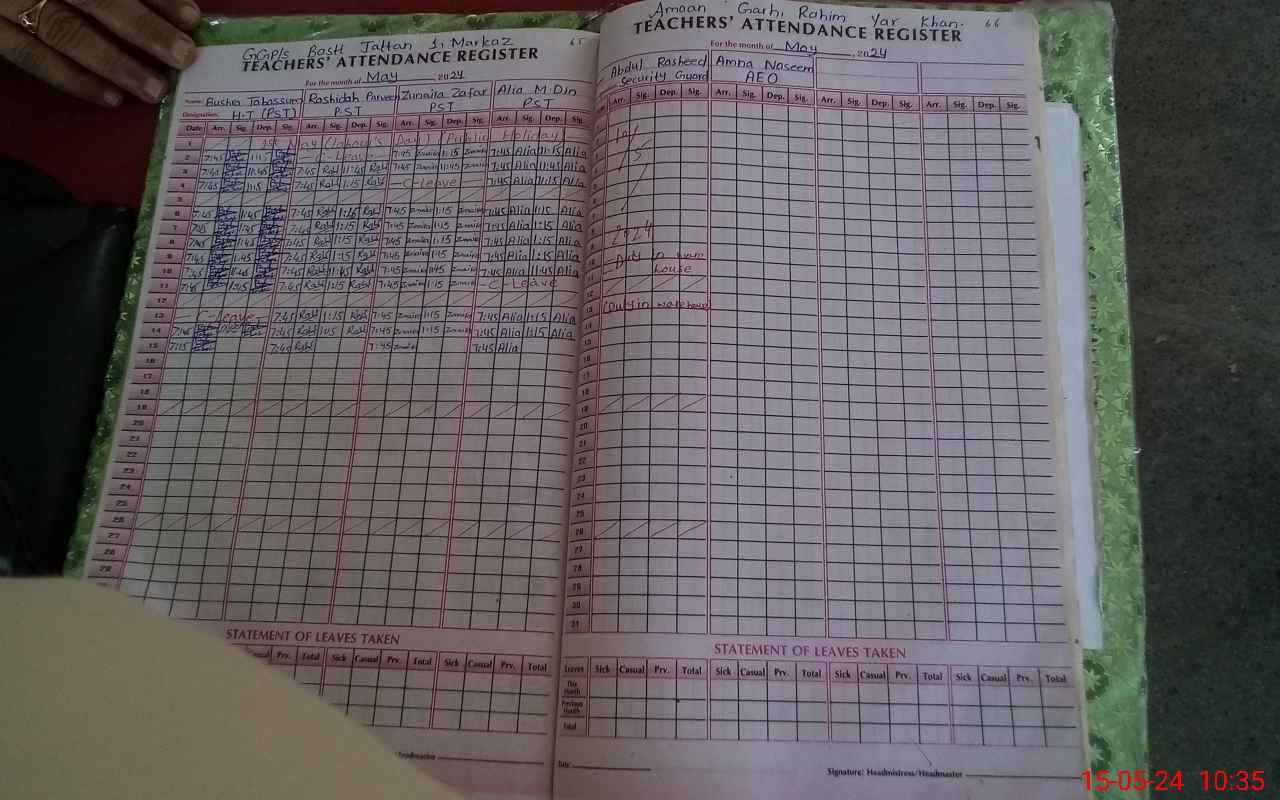 GGPls Basti Jattan 1, Markaz
65
TEACHERS' ATTENDANCE REGISTER
For the month of May, 2024
Name: Bushra Tabassum Rashidah Parveen Zunaira Zafar Alia M Din
Designation: H.T (PST) P.S.T PST PST
Date Arr. Sig. Dep. Sig. Arr. Sig. Dep. Sig. Arr. Sig. Dep. Sig. Arr. Sig. Dep. Sig.
1 1st May (labour's Day) Public Holiday
2 7:45 1:15 -C-Leave- 7:45 Zunaira 1:15 Zunaira 7:45 Alia 11:15 Alia
3 7:45 11:45 7:45 Rabi 11:45 Rabi 7:45 Zunaira 11:45 Zunaira 7:45 Alia 11:45 Alia
4 7:45 1:15 7:45 Rabi 1:15 Rabi -C-Leave- 7:45 Alia 1:15 Alia
5
6 7:45 1:45 7:45 Rabi 1:15 Rabi 7:45 Zunaira 1:15 Zunaira 7:45 Alia 1:15 Alia
7 7:45 1:45 7:45 Rabi 1:15 Rabi 7:45 Zunaira 1:15 Zunaira 7:45 Alia 1:15 Alia
8 7:45 1:45 7:45 Rabi 1:15 Rabi 7:45 Zunaira 1:15 Zunaira 7:45 Alia 1:15 Alia
9 7:45 1:45 7:45 Rabi 1:15 Rabi 7:45 Zunaira 1:15 Zunaira 7:45 Alia 1:15 Alia
10 7:45 11:45 7:45 Rabi 11:45 Rabi 7:45 Zunaira 11:45 Zunaira 7:45 Alia 11:45 Alia
11 7:45 1:45 7:45 Rabi 1:15 Rabi 7:45 Zunaira 1:15 Zunaira -C-Leave
12
13 -C-Leave- 7:45 Rabi 1:15 Rabi 7:45 Zunaira 1:15 Zunaira 7:45 Alia 1:15 Alia
14 7:45 7:45 Rabi 1:15 Rabi 7:45 Zunaira 1:15 Zunaira 7:45 Alia 1:15 Alia
15 7:45 7:45 Rabi 7:45 Zunaira 7:45 Alia
16
17
18
19
20
21
22
23
24
25
26
27
28
29
STATEMENT OF LEAVES TAKEN
Casual Prv. Total Sick Casual Prv. Total Sick Casual Prv. Total
Headmaster
Amaan Garh, Rahim Yar Khan. 66
TEACHERS' ATTENDANCE REGISTER
For the month of May, 2024
Abdul Rasheed Amna Naseem
Security Guard AEO
Arr. Sig. Dep. Sig. Arr. Sig. Dep. Sig. Arr. Sig. Dep. Sig. Arr. Sig. Dep. Sig.
2024
-Duty in ware
house
12
13 (Duty in warehouse)
14
15
16
17
18
19
20
21
22
23
24
25
26
27
28
29
30
31
STATEMENT OF LEAVES TAKEN
Leaves Sick Casual Prv. Total Sick Casual Prv. Total Sick Casual Prv. Total Sick Casual Prv. Total
This Month
Previous Month
Total
Date
Signature: Headmistress/Headmaster
15-05-24 10:35